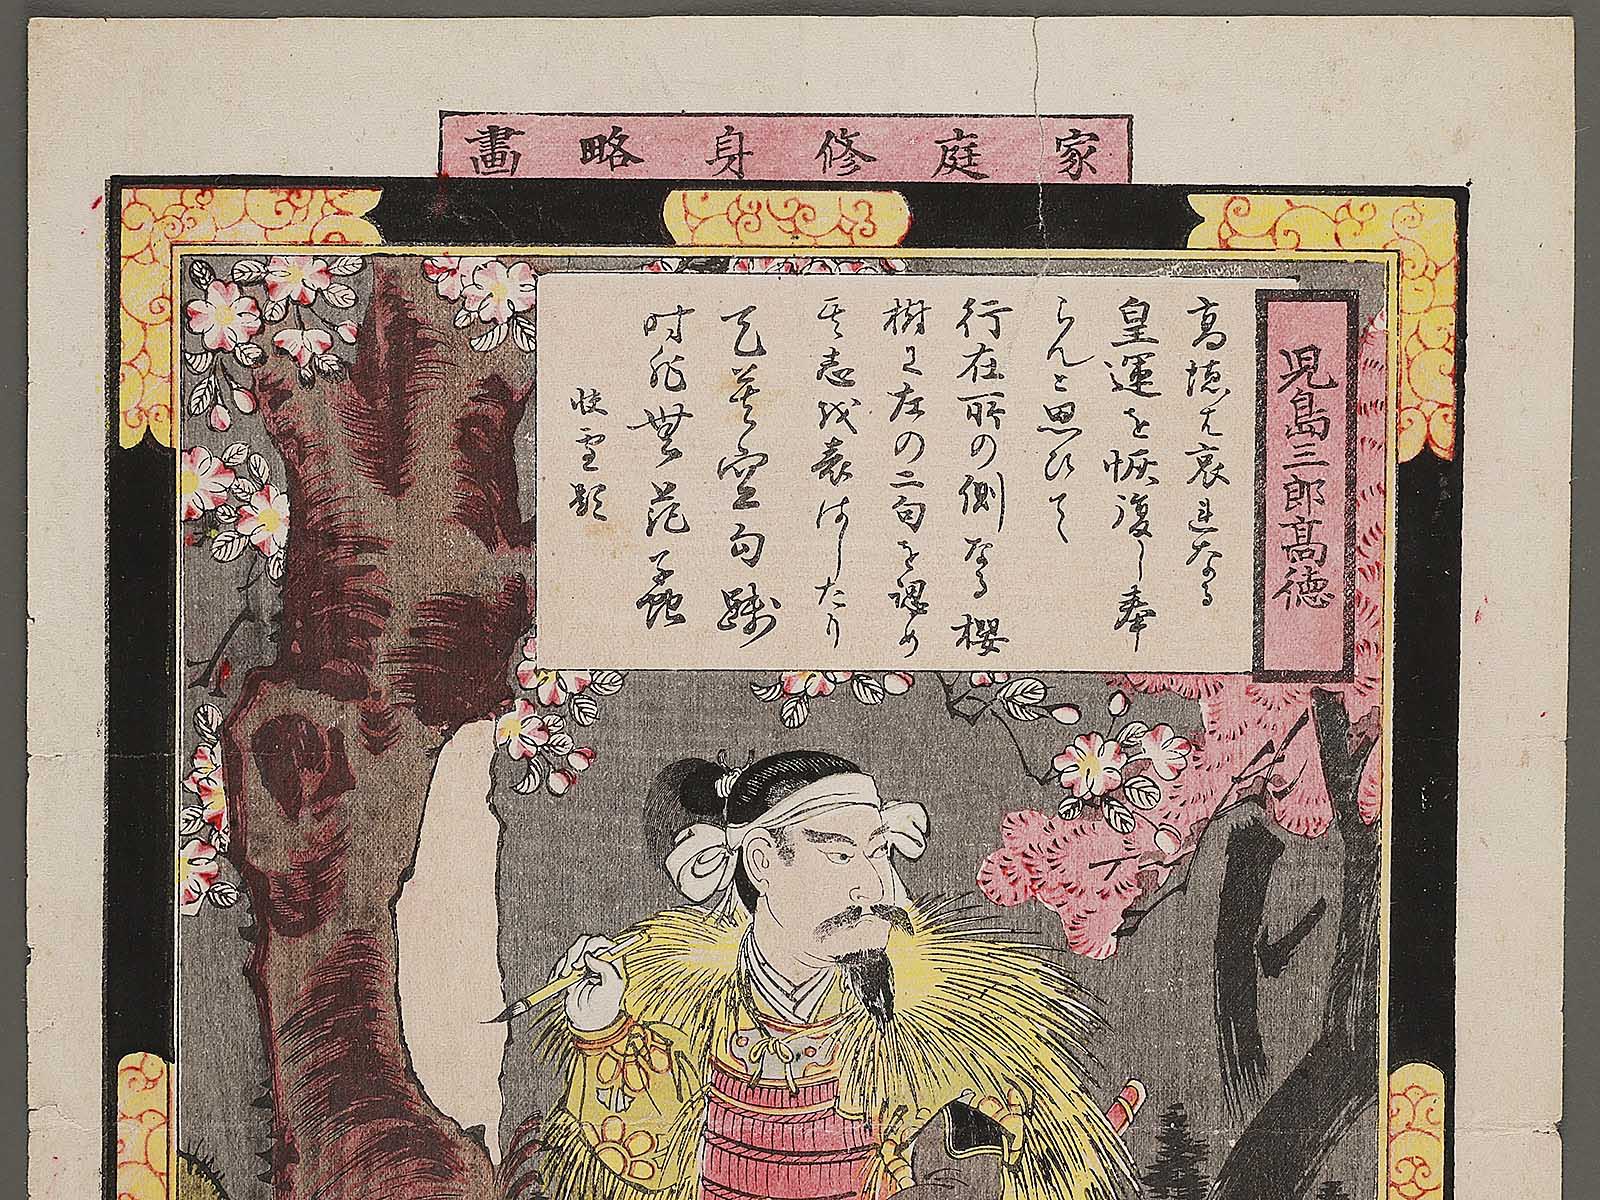 家庭修身略畫
児島三郎高徳
高徳は哀れなる
皇運を恢復し奉
らんと思ひて
行在所の側なる櫻
樹に左の二句を認め
其志を表はしたり
天莫空勾践
時非無范蠡
題